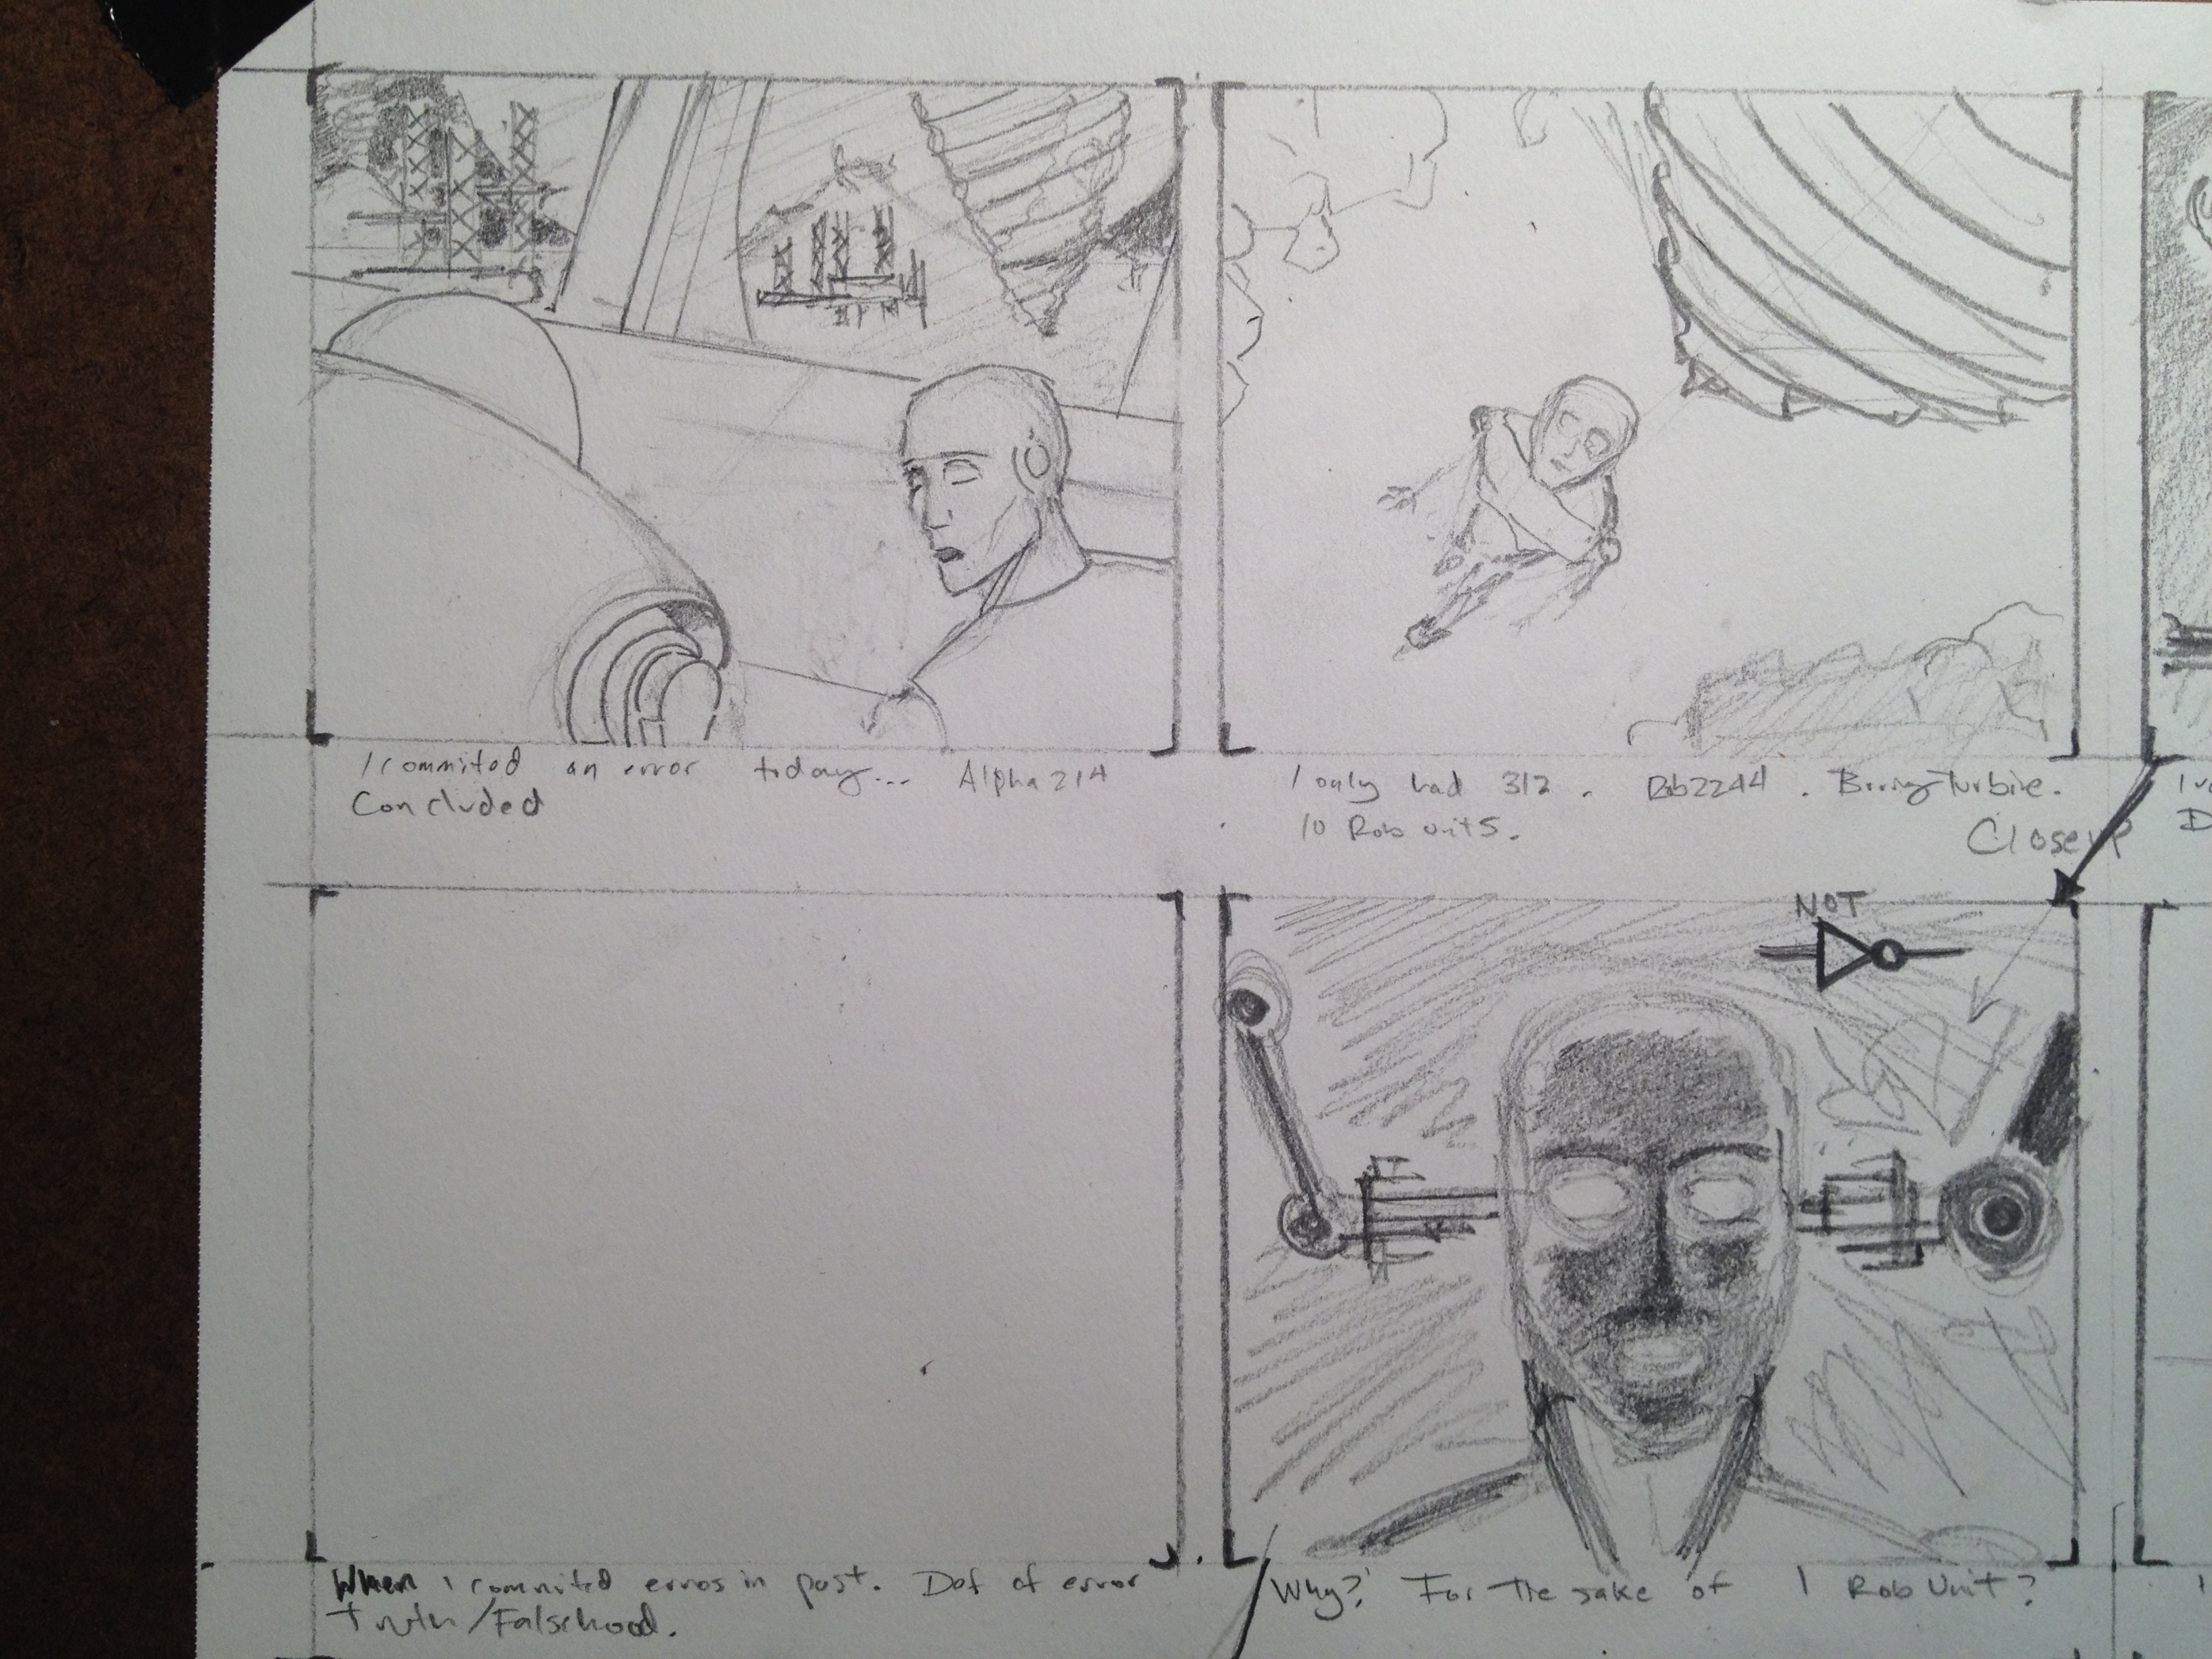 I commited an error today... Alpha 214
Concluded
I only had 312. Rob2244. Boring Turbine.
10 Rob units.
Closeup
NOT
When I commited erros in past. Def of error
truth/Falsehood.
Why? For the sake of 1 Rob Unit?